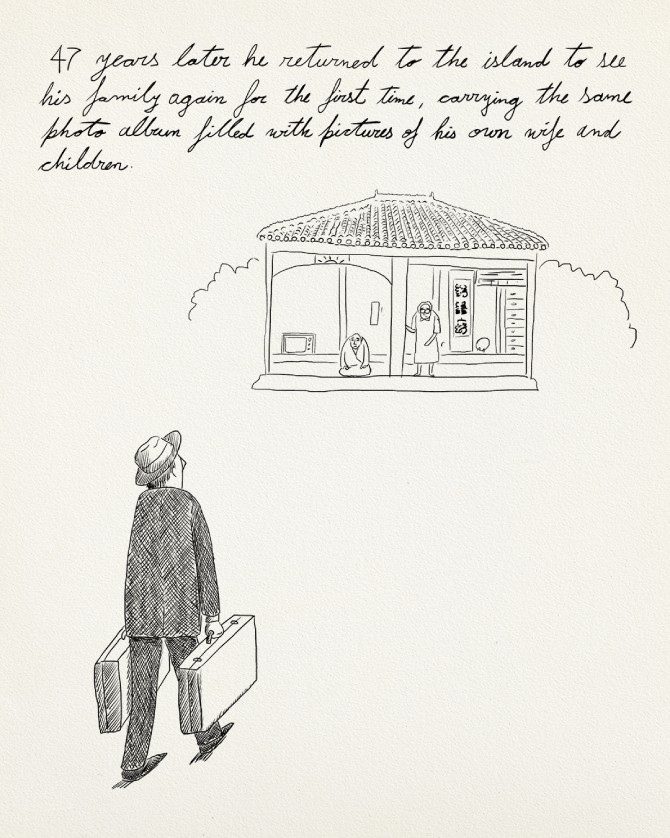 47 years later he returned to the island to see
his family again for the first time, carrying the same
photo album filled with pictures of his own wife and
children.